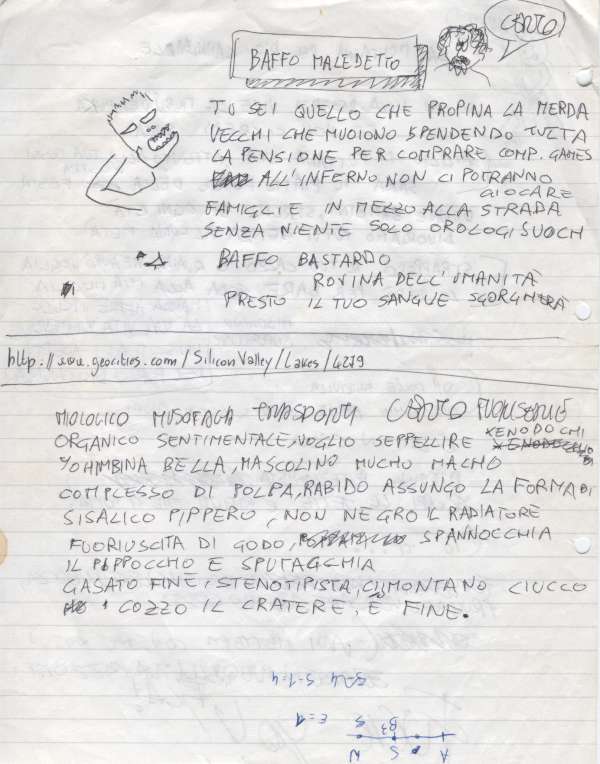 CERTO
BAFFO MALEDETTO
TU SEI QUELLO CHE PROPINA LA MERDA
VECCHI CHE MUOIONO SPENDENDO TUTTA
LA PENSIONE PER COMPRARE COMP. GAMES
ALL'INFERNO NON CI POTRANNO
GIOCARE
FAMIGLIE IN MEZZO ALLA STRADA
SENZA NIENTE SOLO OROLOGI SWOCH
BAFFO BASTARDO
ROVINA DELL'UMANITÀ
PRESTO IL TUO SANGUE SGORGHERÀ
http://www.geocities.com/SiliconValley/Lakes/4279
MIOLOGICO MUSOFAGA CERTO FUORISERIE
ORGANICO SENTIMENTALE, VOGLIO SEPPELLIRE XENODOCHI
YOHIMBINA BELLA, MASCOLINO MUCHO MACHO DI
COMPLESSO DI POLPA, RABIDO ASSUNGO LA FORMA DI
SISALICO PIPPERO, NON NEGRO IL RADIATORE
FUORIUSCITA DI GODO, SPANNOCCHIA
IL PIPPOCCHIO E SPUTACCHIA
GASATO FINE, STENOTIPISTA, CIUCCO
COZZO IL CRATERE, E FINE.
5-1=4
E=1
S B3
A S N